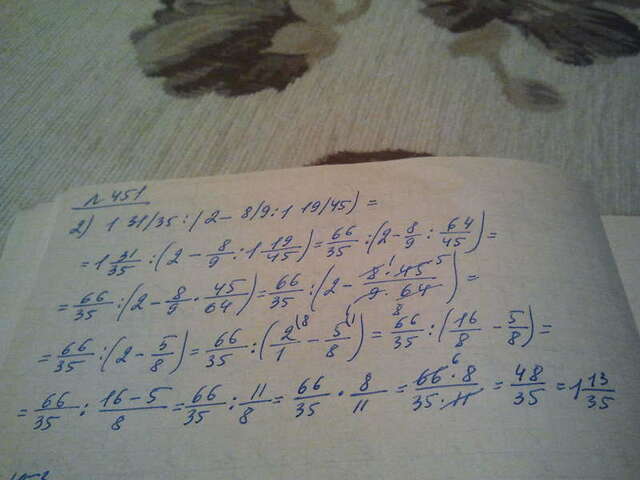 №451
2) 1 31/35 : (2 - 8/9 : 1 19/45) =
= 1 31/35 : (2 - 8/9 : 1 19/45) = 66/35 : (2 - 8/9 : 64/45) =
= 66/35 : (2 - 8/9 · 45/64) = 66/35 : (2 - 8 ¹ · 45 ⁵ / 9 · 64 8) =
= 66/35 : (2 - 5/8) = 66/35 : (2 ⁽⁸ / 1 - 5 ⁽¹ / 8) = 66/35 : (16/8 - 5/8) =
= 66/35 : 16-5/8 = 66/35 : 11/8 = 66/35 · 8/11 = 66 ⁶ · 8 / 35 · 11 = 48/35 = 1 13/35